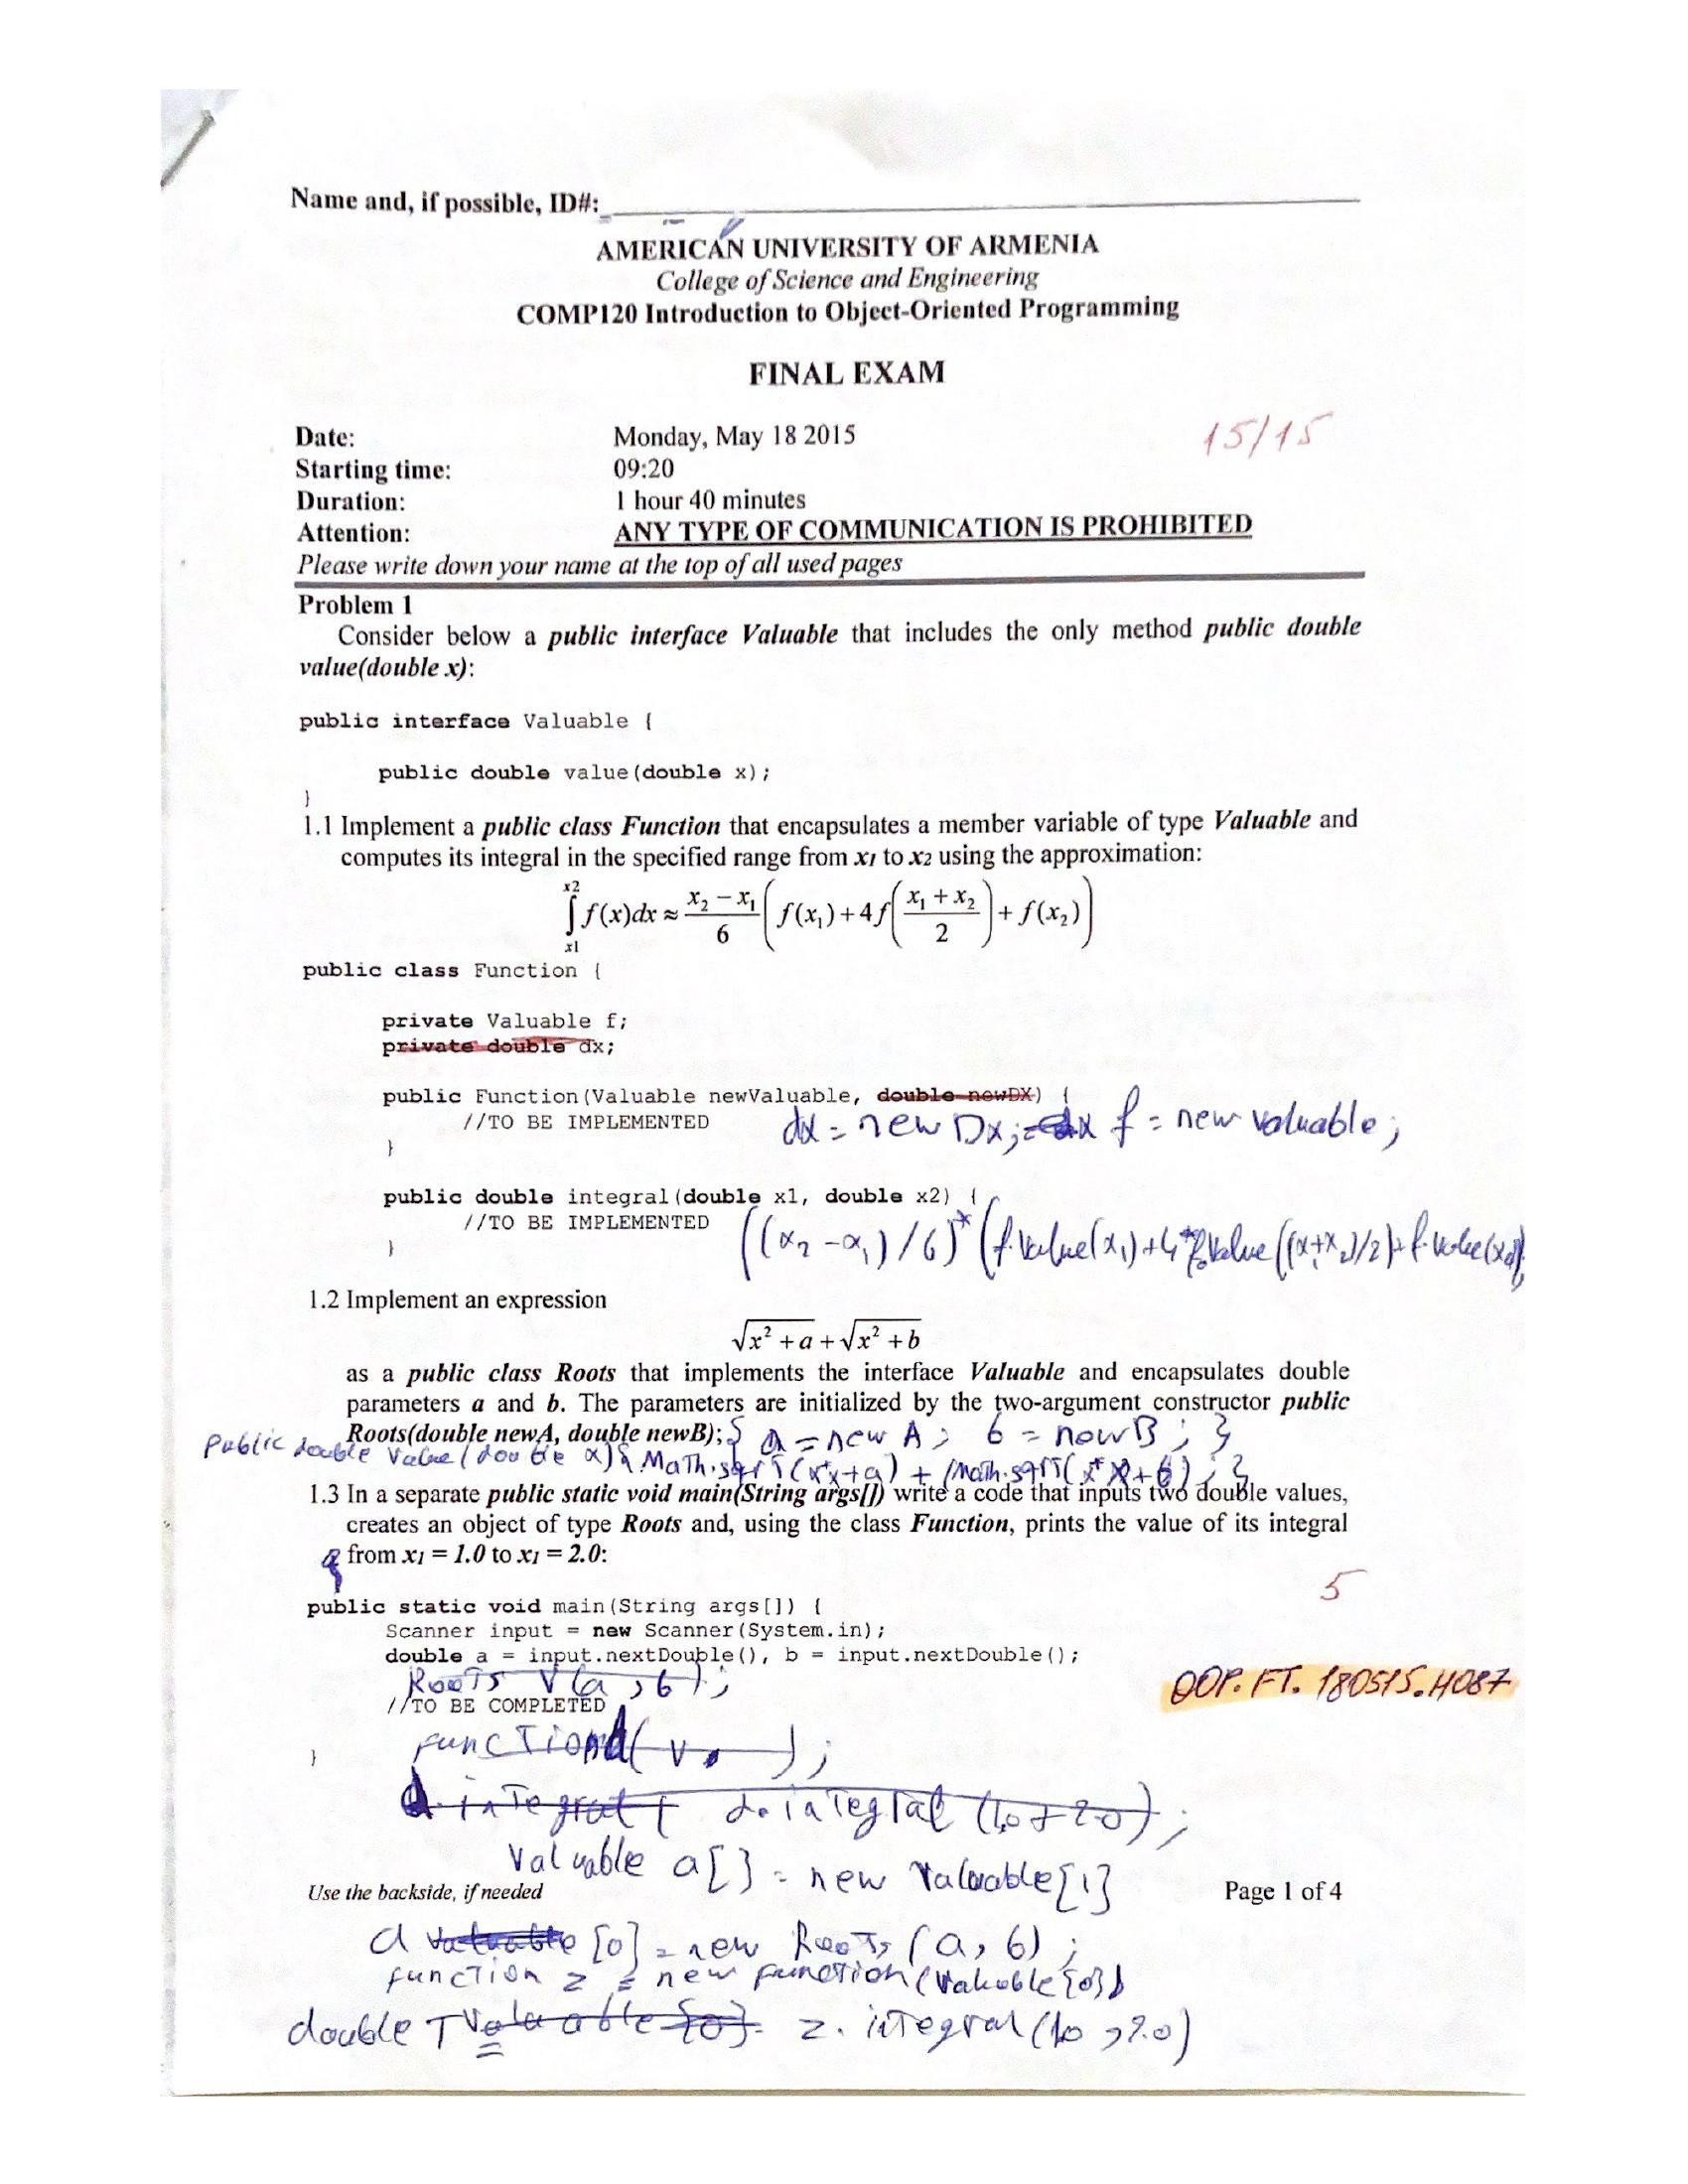 Name and, if possible, ID#:
AMERICAN UNIVERSITY OF ARMENIA
College of Science and Engineering
COMP120 Introduction to Object-Oriented Programming
FINAL EXAM
15/15
Date: Monday, May 18 2015
Starting time: 09:20
Duration: 1 hour 40 minutes
Attention: ANY TYPE OF COMMUNICATION IS PROHIBITED
Please write down your name at the top of all used pages
Problem 1
Consider below a public interface Valuable that includes the only method public double
value(double x):
public interface Valuable {
public double value(double x);
}
1.1 Implement a public class Function that encapsulates a member variable of type Valuable and
computes its integral in the specified range from x1 to x2 using the approximation:
∫ x1 x2 f(x)dx ≈ (x₂ − x₁)/6 ( f(x₁) + 4f( (x₁ + x₂)/2 ) + f(x₂) )
public class Function {
private Valuable f;
private double dx;
public Function(Valuable newValuable, double newDX) {
//TO BE IMPLEMENTED dx = new Dx; f = new valuable;
}
public double integral(double x1, double x2) {
//TO BE IMPLEMENTED ((x₂ - x₁)/6)*(f.value(x₁)+4*f.value((x₁+x₂)/2)+f.value(x₂));
}
1.2 Implement an expression
√x² + a + √x² + b
as a public class Roots that implements the interface Valuable and encapsulates double
parameters a and b. The parameters are initialized by the two-argument constructor public
Roots(double newA, double newB); { a = new A; b = new B; }
Public double Value(double x){ Math.sqrt(x*x+a) + (Math.sqrt(x*x+b); }
1.3 In a separate public static void main(String args[]) write a code that inputs two double values,
creates an object of type Roots and, using the class Function, prints the value of its integral
from x1 = 1.0 to x1 = 2.0:
5
public static void main(String args[]) {
Scanner input = new Scanner(System.in);
double a = input.nextDouble(), b = input.nextDouble();
Roots V(a, b);
OOP.FT.180515.H087
//TO BE COMPLETED
function d( v );
}
d.integral( d.integral (1.0 , 2.0);
Valuable a[] = new Valuable[1]
Use the backside, if needed Page 1 of 4
a valuable [0] = new Roots (a, b);
function z = new function(valuable[0])
double T valuable[0] = z. integral (1.0 , 2.0)